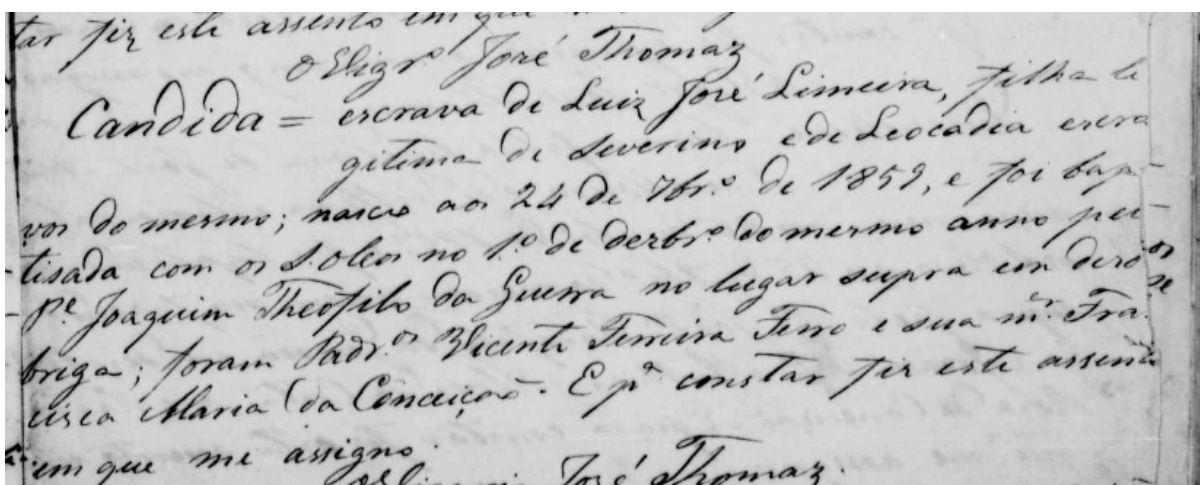 tar fiz este assento em que
O Vigrº José Thomaz
Candida = escrava de Luiz José Limeira, filha le
gitima de Severino e de Leocadia escra
vos do mesmo; nasceo aos 24 de 7brº de 1859, e foi bap-
tisada com os S. oleos no 1º de dezbrº do mesmo anno pelo
Pe. Joaquim Theofilo da Guerra no lugar supra em deso
briga; foram Padrºs Vicente Ferreira Ferro e sua mer Fra
cisca Maria da Conceição. E pª constar fiz este assento
em que me assigno.
José Thomaz.